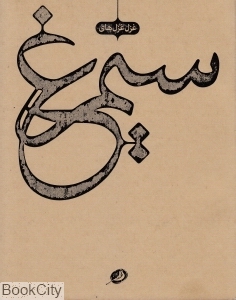 غزل غزل‌های
سیمرغ
BookCity